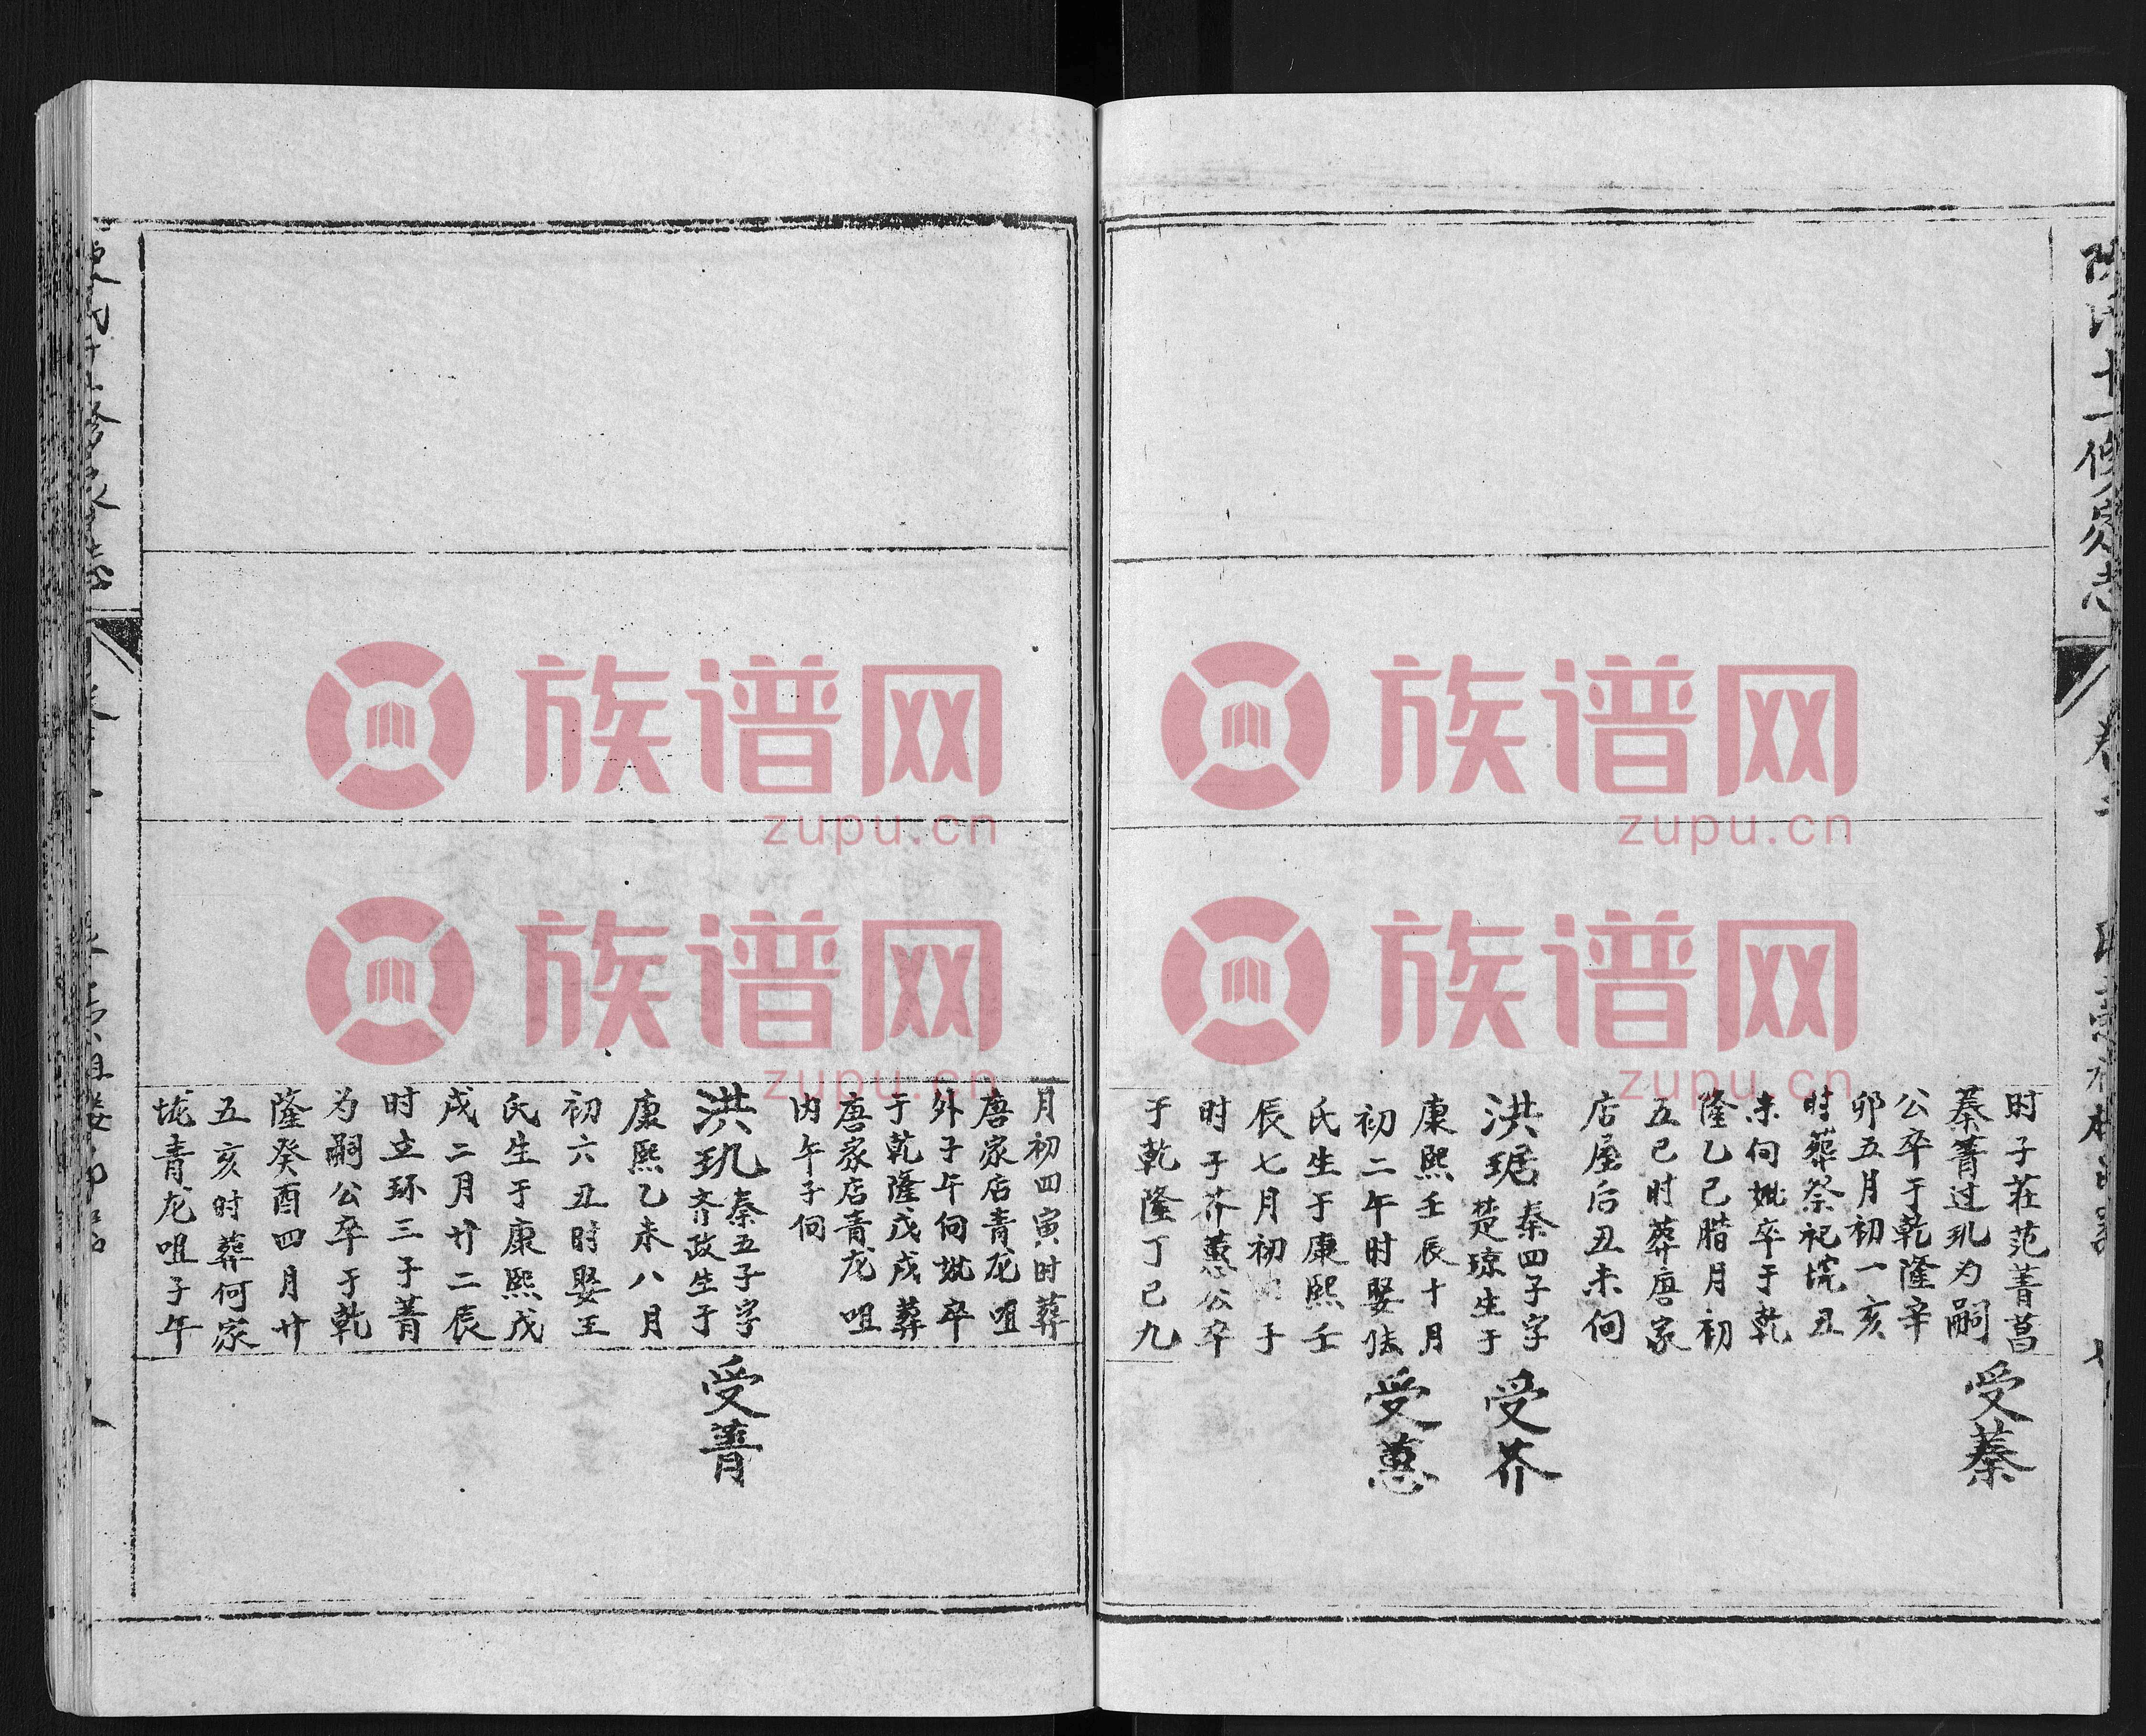 时子荘范菁菖
蓁菁过玑为嗣
公卒于乾隆辛
卯五月初一亥
时葬祭祀垸丑
未向妣卒于乾
隆乙巳腊月初
五巳时葬唐家
店屋后丑未向
洪琚秦四子字
楚琼生于
康熙壬辰十月
初二午时娶
氏生于康熙壬
辰七月初 子
时子芥蔥公卒
于乾隆丁巳九
受蓁
受芥
受蔥
月初四寅时葬
唐家店青龙咀
外子午向妣卒
于乾隆戊戌葬
唐家店青龙咀
内午子向
洪玑秦五子字
齐政生于
康熙乙未八月
初六丑时娶王
氏生于康熙戊
戌二月廿二辰
时立环三子菁
为嗣公卒于乾
隆癸酉四月廿
五亥时葬何家
垅青龙咀子午
受菁
族谱网
zupu.cn
族谱网
zupu.cn
族谱网
zupu.cn
族谱网
zupu.cn